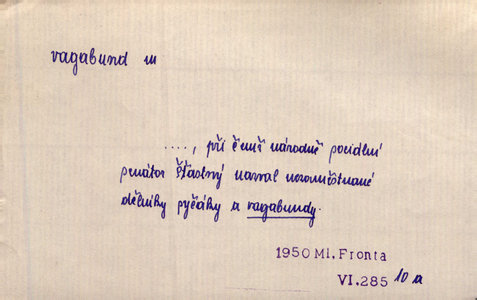 vagabund m
...., při čemž národně sociální
senátor Šťastný nazval nezaměstnané
dělníky syčáky a vagabundy.
1950 Ml. Fronta
VI.285 10 a